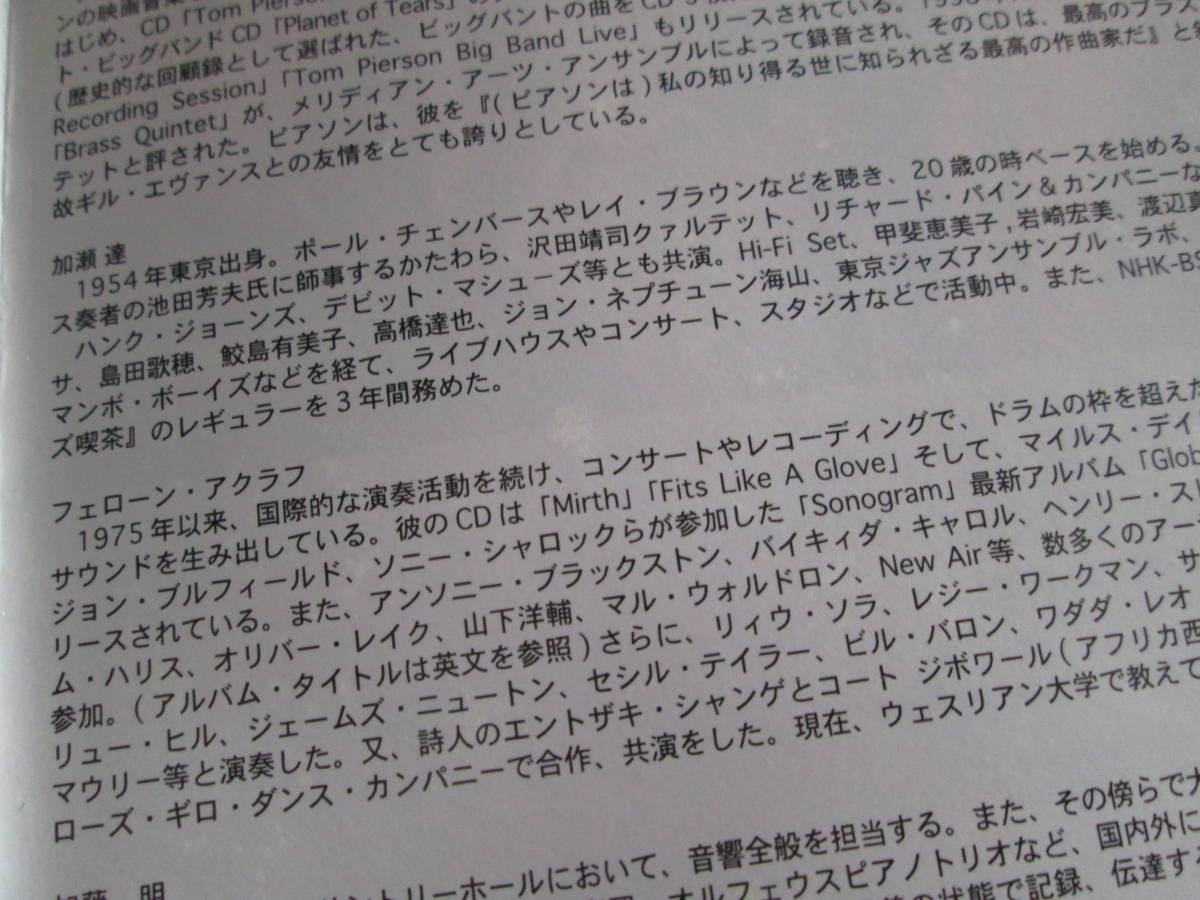 ンの映画音楽
はじめ、CD「Tom Pierson
ト・ビッグバンドCD「Planet of Tears」の
(歴史的な回顧録として選ばれた、ビッグバンドの曲をCD
Recording Session」「Tom Pierson Big Band Live」もリリースされている。
「Brass Quintet」が、メリディアン・アーツ・アンサンブルによって録音され、そのCDは、最高のブラス
テットと評された。ピアソンは、彼を『(ピアソンは)私の知り得る世に知られざる最高の作曲家だ』と
故ギル・エヴァンスとの友情をとても誇りとしている。
加瀬 達
1954年東京出身。ポール・チェンバースやレイ・ブラウンなどを聴き、20歳の時ベースを始める。
ス奏者の池田芳夫氏に師事するかたわら、沢田靖司クァルテット、リチャード・パイン&カンパニーな
ハンク・ジョーンズ、デビット・マシューズ等とも共演。Hi-Fi Set、甲斐恵美子,岩崎宏美、渡辺真
サ、島田歌穂、鮫島有美子、高橋達也、ジョン・ネプチューン海山、東京ジャズアンサンブル・ラボ、
マンボ・ボーイズなどを経て、ライブハウスやコンサート、スタジオなどで活動中。また、NHK-BS
ズ喫茶』のレギュラーを3年間務めた。
フェローン・アクラフ
1975年以来、国際的な演奏活動を続け、コンサートやレコーディングで、ドラムの枠を超えた
サウンドを生み出している。彼のCDは「Mirth」「Fits Like A Glove」そして、マイルス・デイ
ジョン・ブルフィールド、ソニー・シャロックらが参加した「Sonogram」最新アルバム「Glob
リースされている。また、アンソニー・ブラックストン、バイキィダ・キャロル、ヘンリー・スレ
ム・ハリス、オリバー・レイク、山下洋輔、マル・ウォルドロン、New Air等、数多くのアー
参加。(アルバム・タイトルは英文を参照)さらに、リィウ・ソラ、レジー・ワークマン、サ
リュー・ヒル、ジェームズ・ニュートン、セシル・テイラー、ビル・バロン、ワダダ・レオ
マウリー等と演奏した。又、詩人のエントザキ・シャンゲとコート ジボワール(アフリカ西
ローズ・ギロ・ダンス・カンパニーで合作、共演をした。現在、ウェスリアン大学で教えて
加藤 明
ントリーホールにおいて、音響全般を担当する。また、その傍らで
オルフェウスピアノトリオなど、国内外に
の状態で記録、伝達する